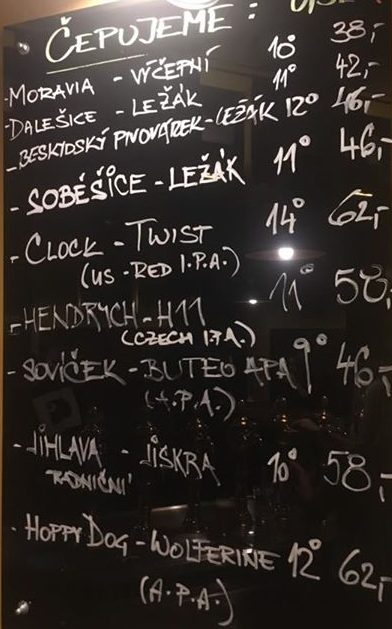 ČEPUJEME:
-MORAVIA - VÝČEPNÍ 10° 38,-
-DALEŠICE - LEŽÁK 11° 42,-
-BESKYDSKÝ PIVOVÁREK-LEŽÁK 12° 46,-
-SOBĚŠICE-LEŽÁK 11° 46,-
-CLOCK - TWIST 14° 62,-
(US-RED I.P.A.)
-HENDRYCH-H11 11° 58,
(CZECH I.P.A.)
-SOVÍČEK-BUTEO APA 9° 46,-
(A.P.A.)
-JIHLAVA - JIŠKRA 10° 58,-
RADNIČNÍ
-HOPPY DOG-WOLFERINE 12° 62,-
(A.P.A.)